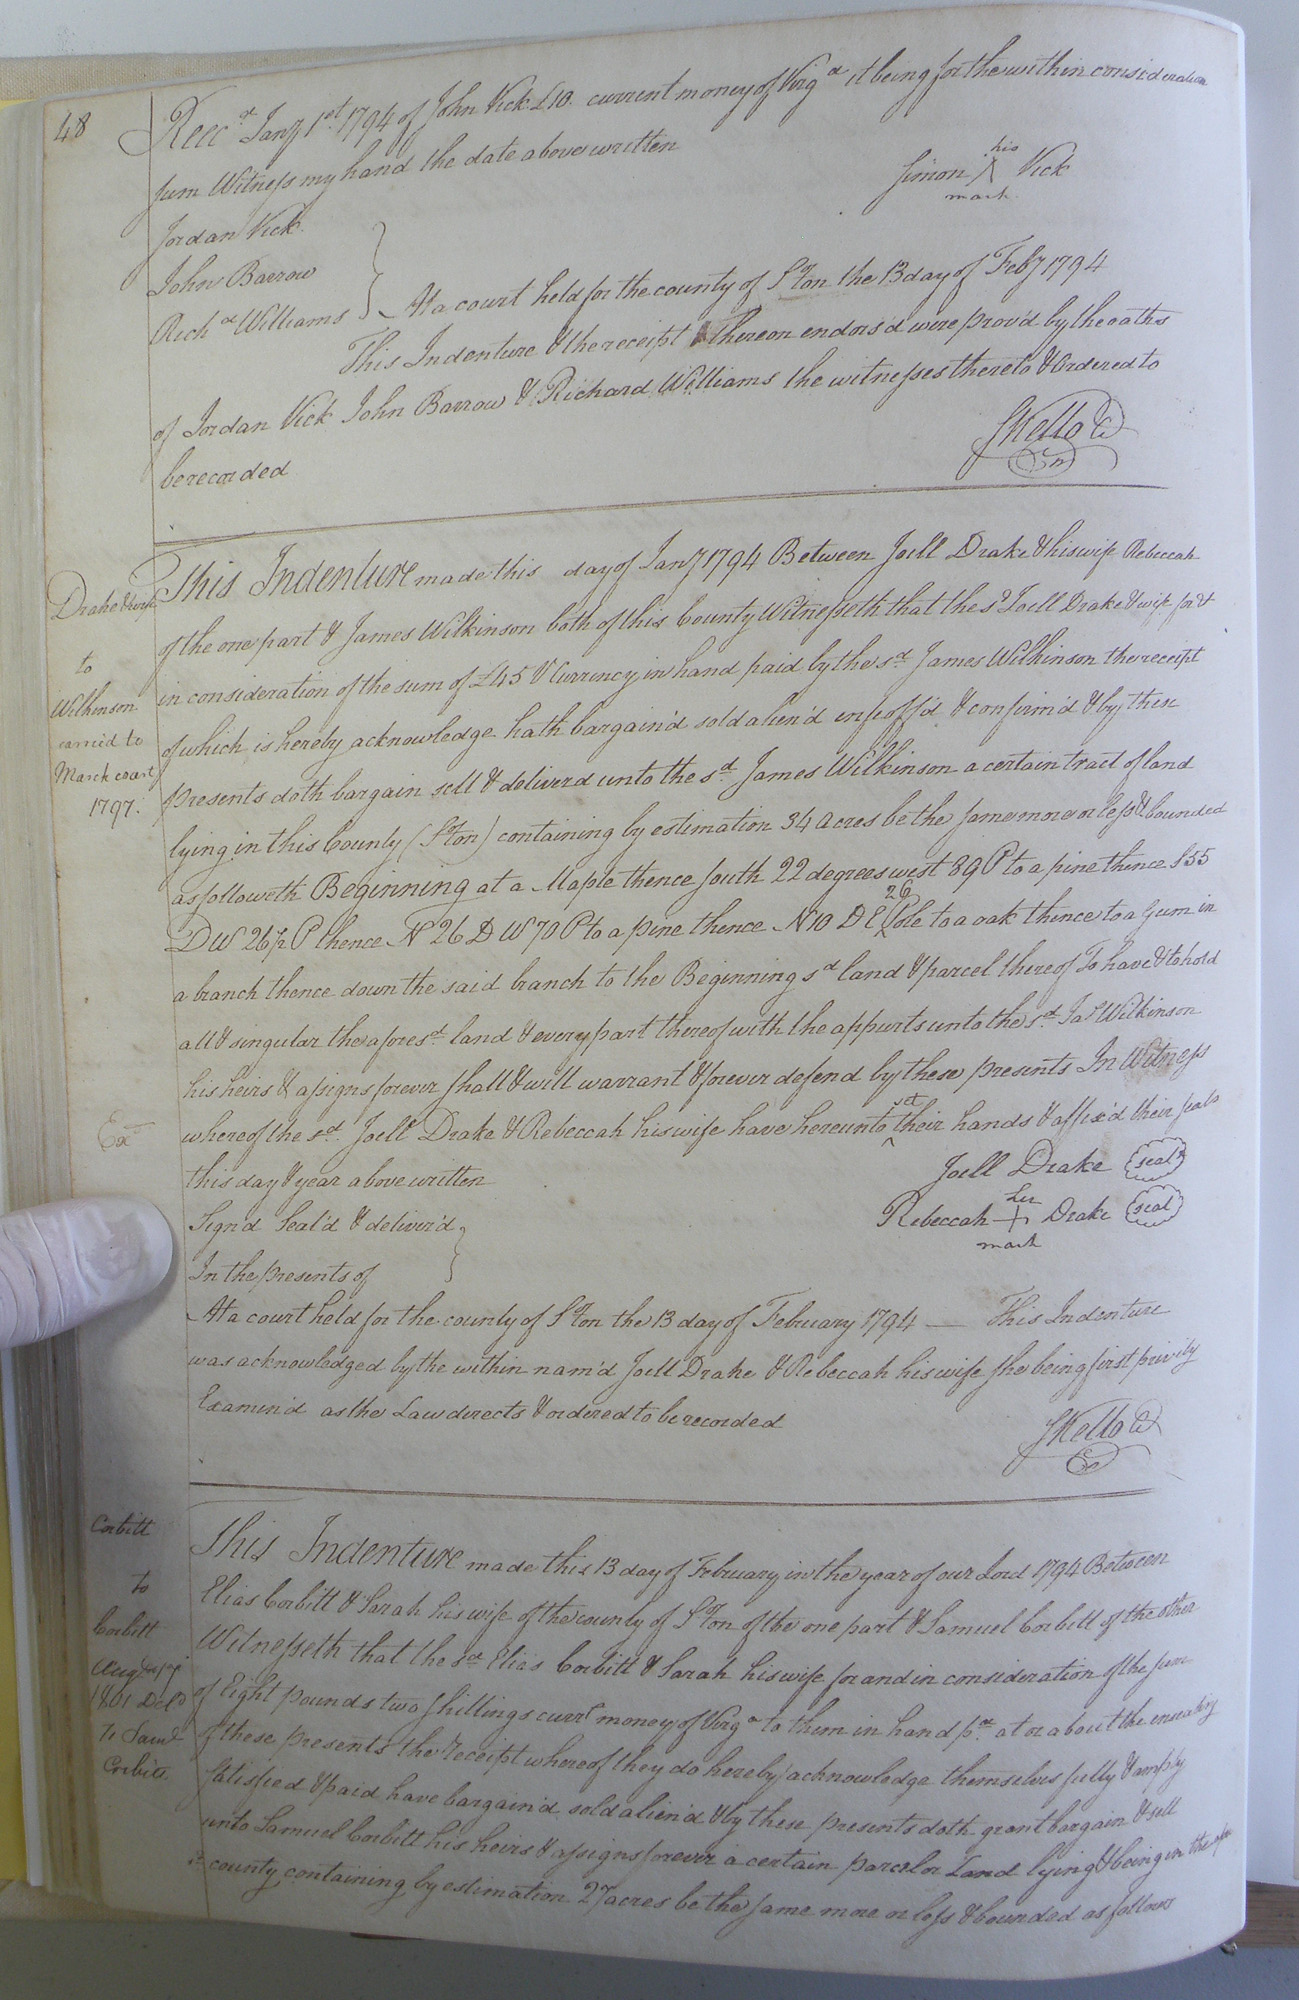 48
Recd Jany 1st 1794 of John Vick £10. current money of Virga it being for the within consideration
sum Witness my hand the date above written
his
Simon X Vick
mark
Jordan Vick
John Barrow
Richd Williams } At a court held for the county of S'ton the 13 day of Feby 1794
This Indenture & the receipt thereon endors'd were prov'd by the oaths
of Jordan Vick John Barrow & Richard Williams the witnesses thereto & Ordered to
be recorded
SKello C
Drake & wife
to
Wilkinson
carried to
March court
1797.
This Indenture made this day of Jany 1794 Between Joell Drake & his wife Rebeccah
of the one part & James Wilkinson both of this County Witnesseth that the sd Joell Drake & wife for &
in consideration of the sum of £45 V Currency in hand paid by the sd James Wilkinson the receipt
of which is hereby acknowledge hath bargain'd sold alien'd enfeoff'd & confirm'd & by these
presents doth bargain sell & deliverd unto the sd James Wilkinson a certain tract of land
lying in this County (S'ton) containing by estimation 34 acres be the same more or less & bounded
as followeth Beginning at a Maple thence South 22 degrees west 89 P to a pine thence S 55
D W 26 1/2 P thence N 26 D W 70 P to a pine thence N 10 D E 26 Pole to a oak thence to a Gum in
a branch thence down the said branch to the Beginning sd land & parcel thereof To have & to hold
all & singular the aforesd land & every part thereof with the appurts unto the sd Jas Wilkinson
his heirs & assigns forever shall & will warrant & forever defend by these presents In Witness
Exd
whereof the sd Joell Drake & Rebeccah his wife have hereunto set their hands & affix'd their seals
this day & year above written
Joell Drake (seal)
Sign'd Seal'd & deliver'd
her
Rebeccah + Drake (seal)
mark
In the presents of
At a court held for the county of S'ton the 13 day of February 1794 — This Indenture
was acknowledged by the within nam'd Joell Drake & Rebeccah his wife she being first privily
Examin'd as the Law directs & ordered to be recorded
SKello C
Corbitt
to
Corbitt
1801 Deld
To Saml
Corbitt
This Indenture made this 13 day of February in the year of our Lord 1794 Between
Elias Corbitt & Sarah his wife of the county of S'ton of the one part & Samuel Corbitt of the other
Witnesseth that the sd Elias Corbitt & Sarah his wife for and in consideration of the sum
of Eight pounds two shillings currt money of Virga to them in hand pd at or about the ensealing
of these presents the receipt whereof they do hereby acknowledge themselves fully & amply
satisfied & paid have bargain'd sold alien'd & by these presents doth grant bargain & sell
unto Samuel Corbitt his heirs & assigns forever a certain parcel or Land lying & being in the afore
sd county containing by estimation 27 acres be the same more or less & bounded as follows